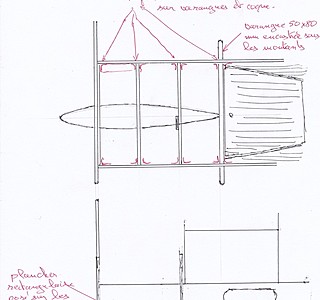 sur varangues de coque.
varangue 50x80
mm encastrée sous
les montants
plancher
rectangulaire
posé sur les